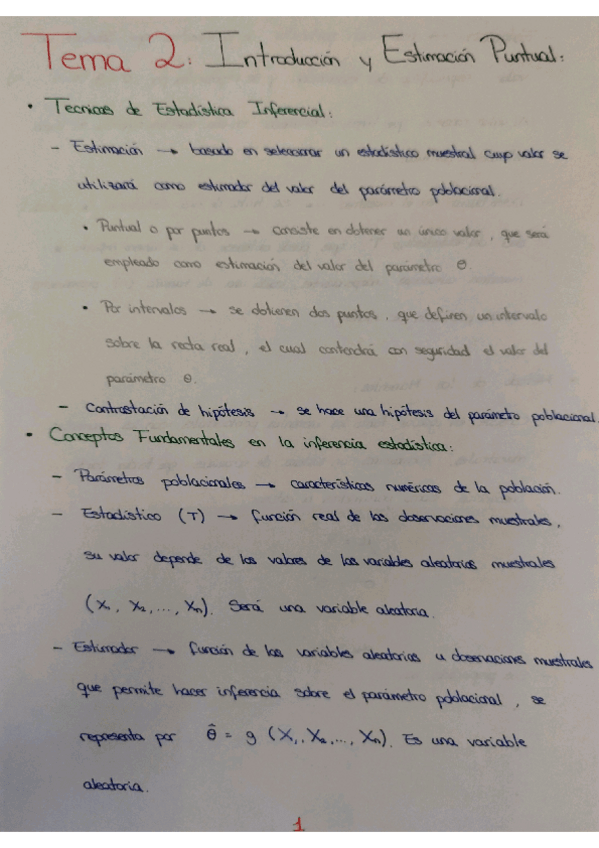 Tema 2: Introducción y Estimación Puntual:
• Tecnicas de Estadística Inferencial:
– Estimación → basado en seleccionar un estadístico muestral cuyo valor se
utilizará como estimador del valor del parámetro poblacional.
• Puntual o por puntos → consiste en obtener un único valor, que será
empleado como estimación del valor del parámetro θ.
• Por intervalos → se obtienen dos puntos, que definen un intervalo
sobre la recta real, el cual contendrá con seguridad el valor del
parámetro θ.
– Contrastación de hipótesis → se hace una hipótesis del parámetro poblacional.
• Conceptos Fundamentales en la inferencia estadística:
– Parámetros poblacionales → características numéricas de la población.
– Estadístico (T) → función real de las observaciones muestrales,
su valor depende de los valores de las variables aleatorias muestrales
(X₁, X₂, ..., Xₙ). Será una variable aleatoria.
– Estimador → función de las variables aleatorias u observaciones muestrales
que permite hacer inferencia sobre el parámetro poblacional, se
representa por θ̂ = g (X₁, X₂, ..., Xₙ). Es una variable
aleatoria.
1